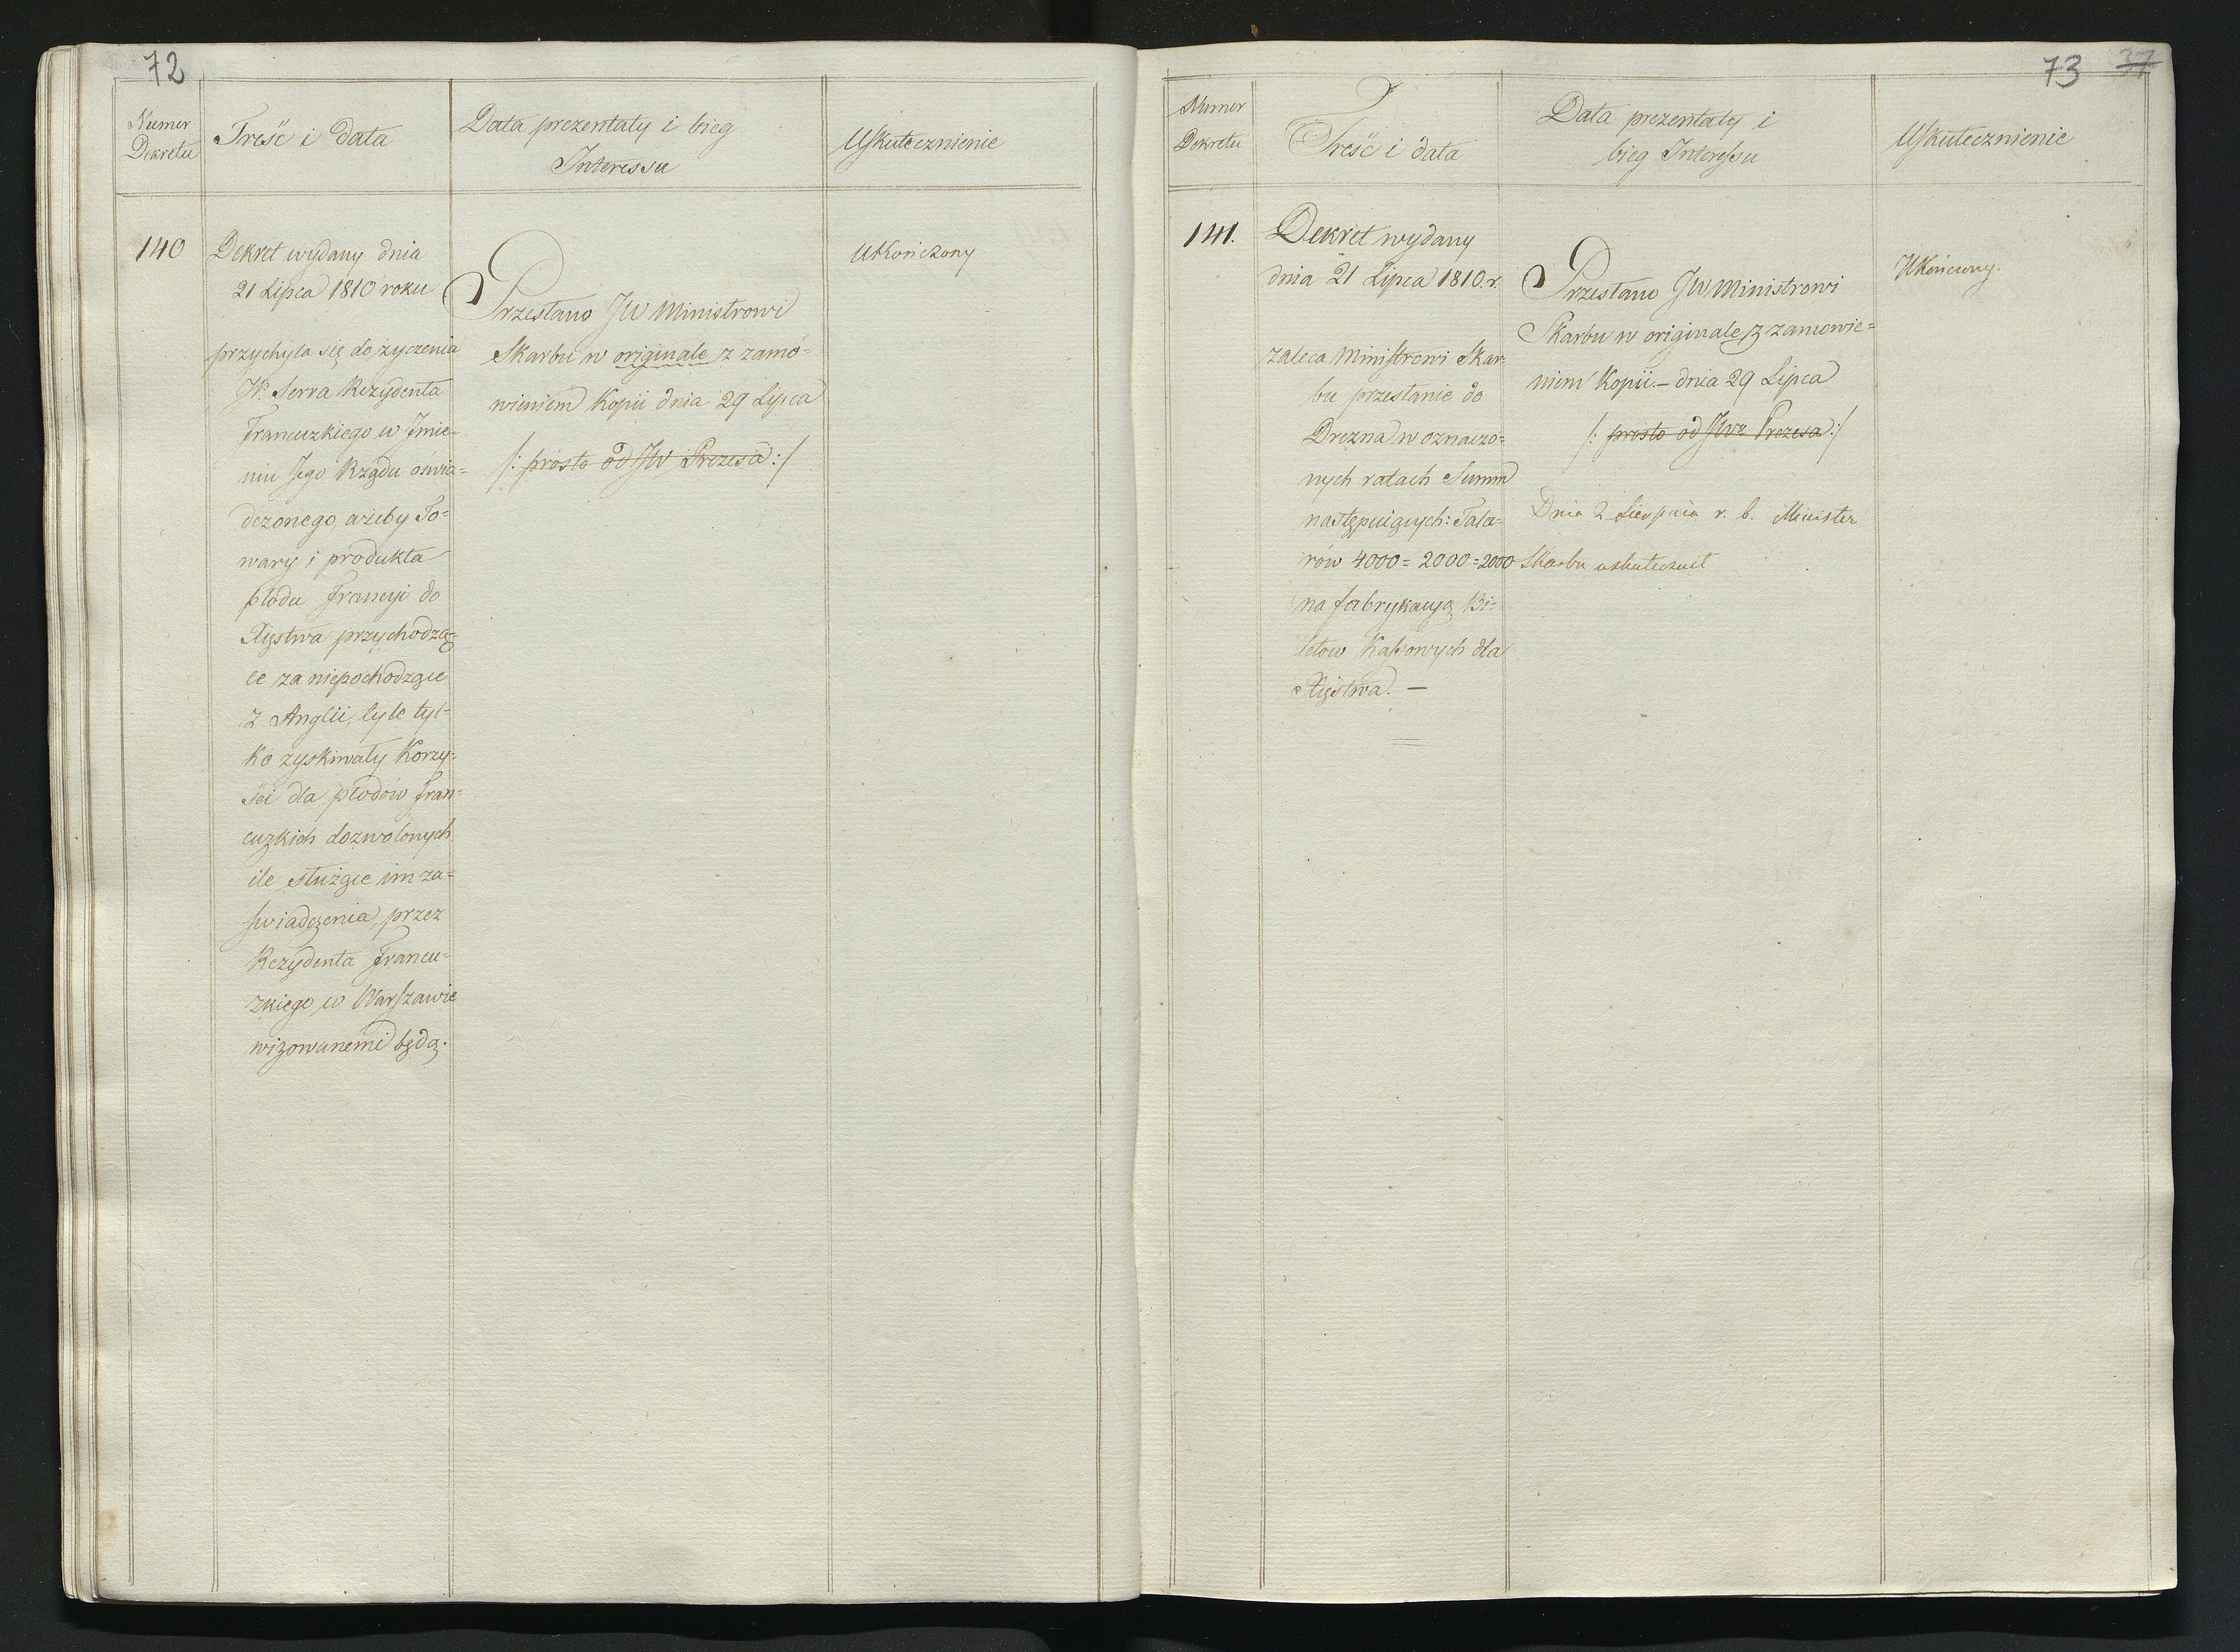 72
Numer
Dekretu
Treść i data
Data prezentaty i bieg
Interessu
Uskutecznienie
140
Dekret wydany dnia
21 Lipca 1810 roku
przychyla się do życzenia
JP. Serra Rezydenta
Francuzkiego w Jmie-
niu Jego Rządu oświa-
dczonego, ażeby To-
wary i produkta
płodu Francyi do
Xięstwa przychodzą-
ce za niepochodzące
z Anglii, tyle tyl-
ko zyskiwały Korzy-
ści dla płodów fran-
cuzkich dozwolonych
ile służące im za-
świadczenia, przez
Rezydenta Francu-
zkiego w Warszawie
wizowanemi będą.
Przesłano JW Ministrowi
Skarbu w originale z zamó-
wieniem Kopii dnia 29 Lipca
/: prosto od JW Prezesa :/
Ukończony
73 37
Numer
Dekretu
Treść i data
Data prezentaty i
bieg Interessu
Uskutecznienie
141.
Dekret wydany
dnia 21 Lipca 1810. r.
zaleca Ministrowi Skar-
bu przesłanie do
Drezna w oznaczo-
nych ratach Summ
następuiących: Tala-
rów 4000 = 2000 = 2000
na fabrykacyą Bi-
letow Kassowych dla
Xięstwa. —
Przesłano JW Ministrowi
Skarbu w originale z zamowie-
niem Kopii. — dnia 29 Lipca
/: prosto od JWo Prezesa :/
Dnia 2 Sierpnia r. b. Minister
Skarbu uskutecznił
Ukończony.